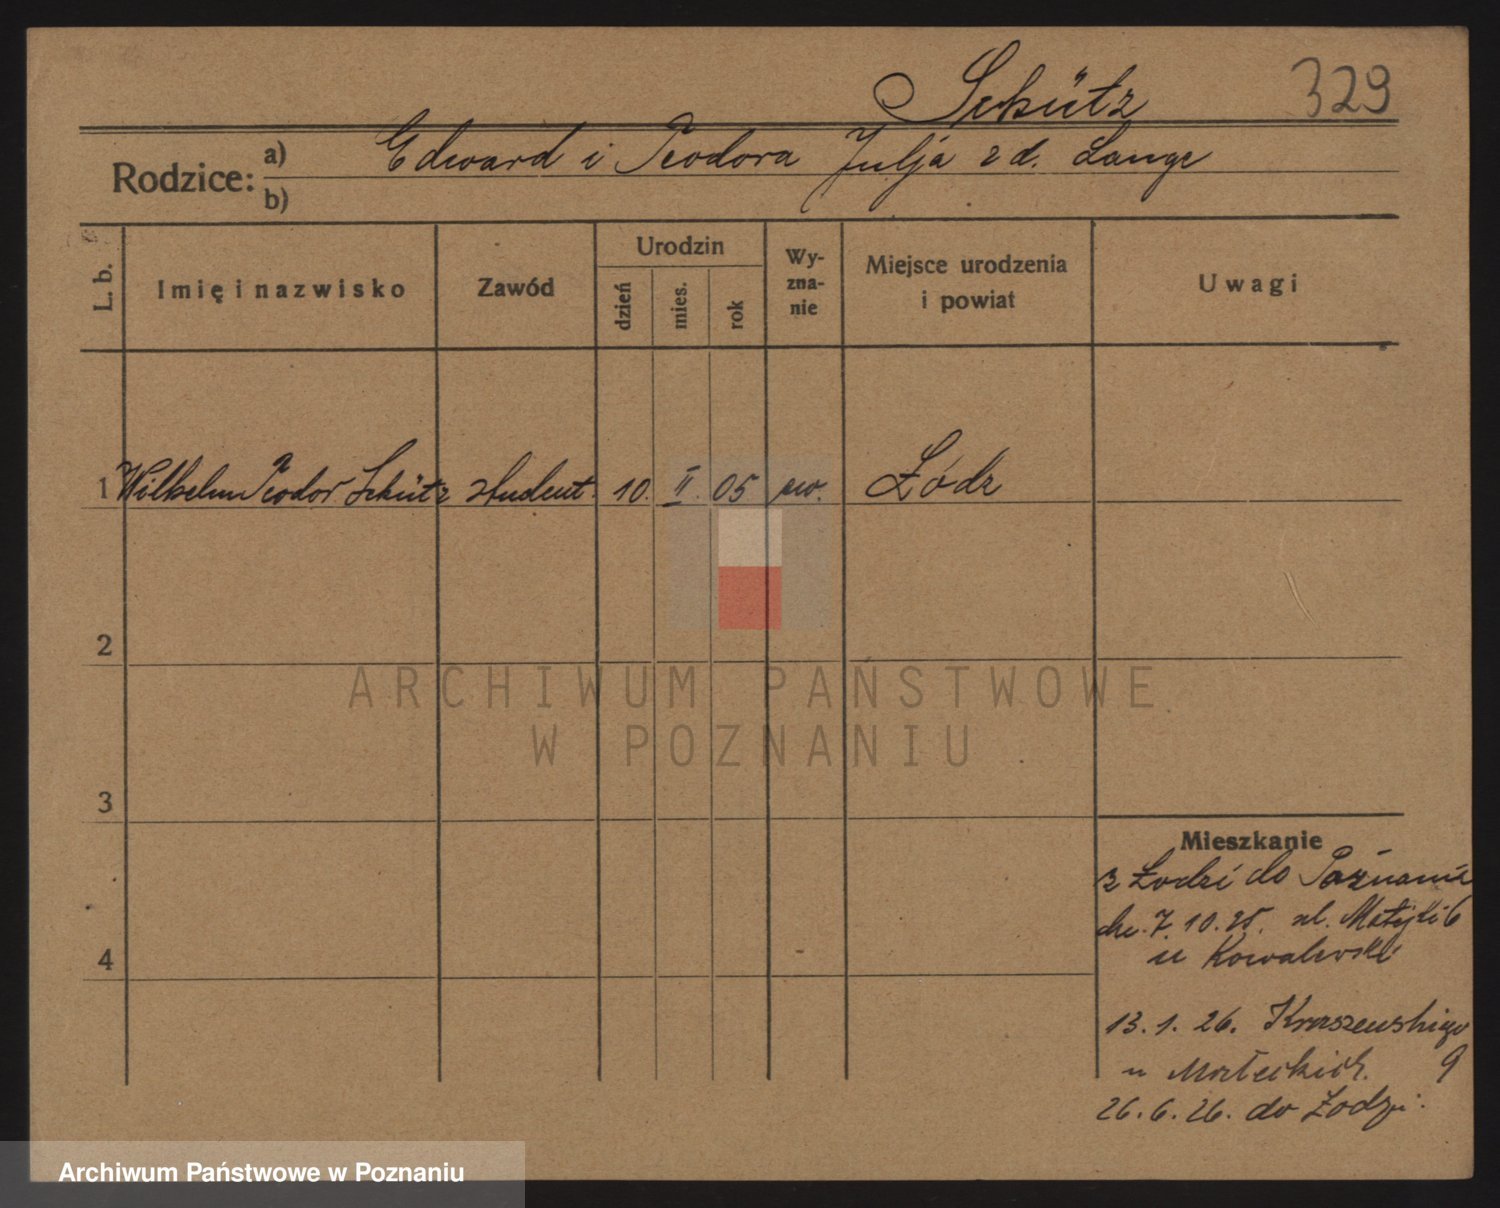 Schütz 329
Rodzice: a) Edward i Teodora Julja z d. Lange
b)
L. b. Imię i nazwisko Zawód Urodzin dzień mies. rok Wy-zna-nie Miejsce urodzenia i powiat Uwagi
1 Wilhelm Teodor Schütz student. 10. II. 05 ew. Łódź
2
3
4
Mieszkanie
z Łodzi do Poznania
7.10.25. ul. Matejki 6
u Kowalewski
13.1.26. Kraszewskiego 9
u Małeckich.
26.6.26. do Łodzi.
ARCHIWUM PAŃSTWOWE
W POZNANIU
Archiwum Państwowe w Poznaniu